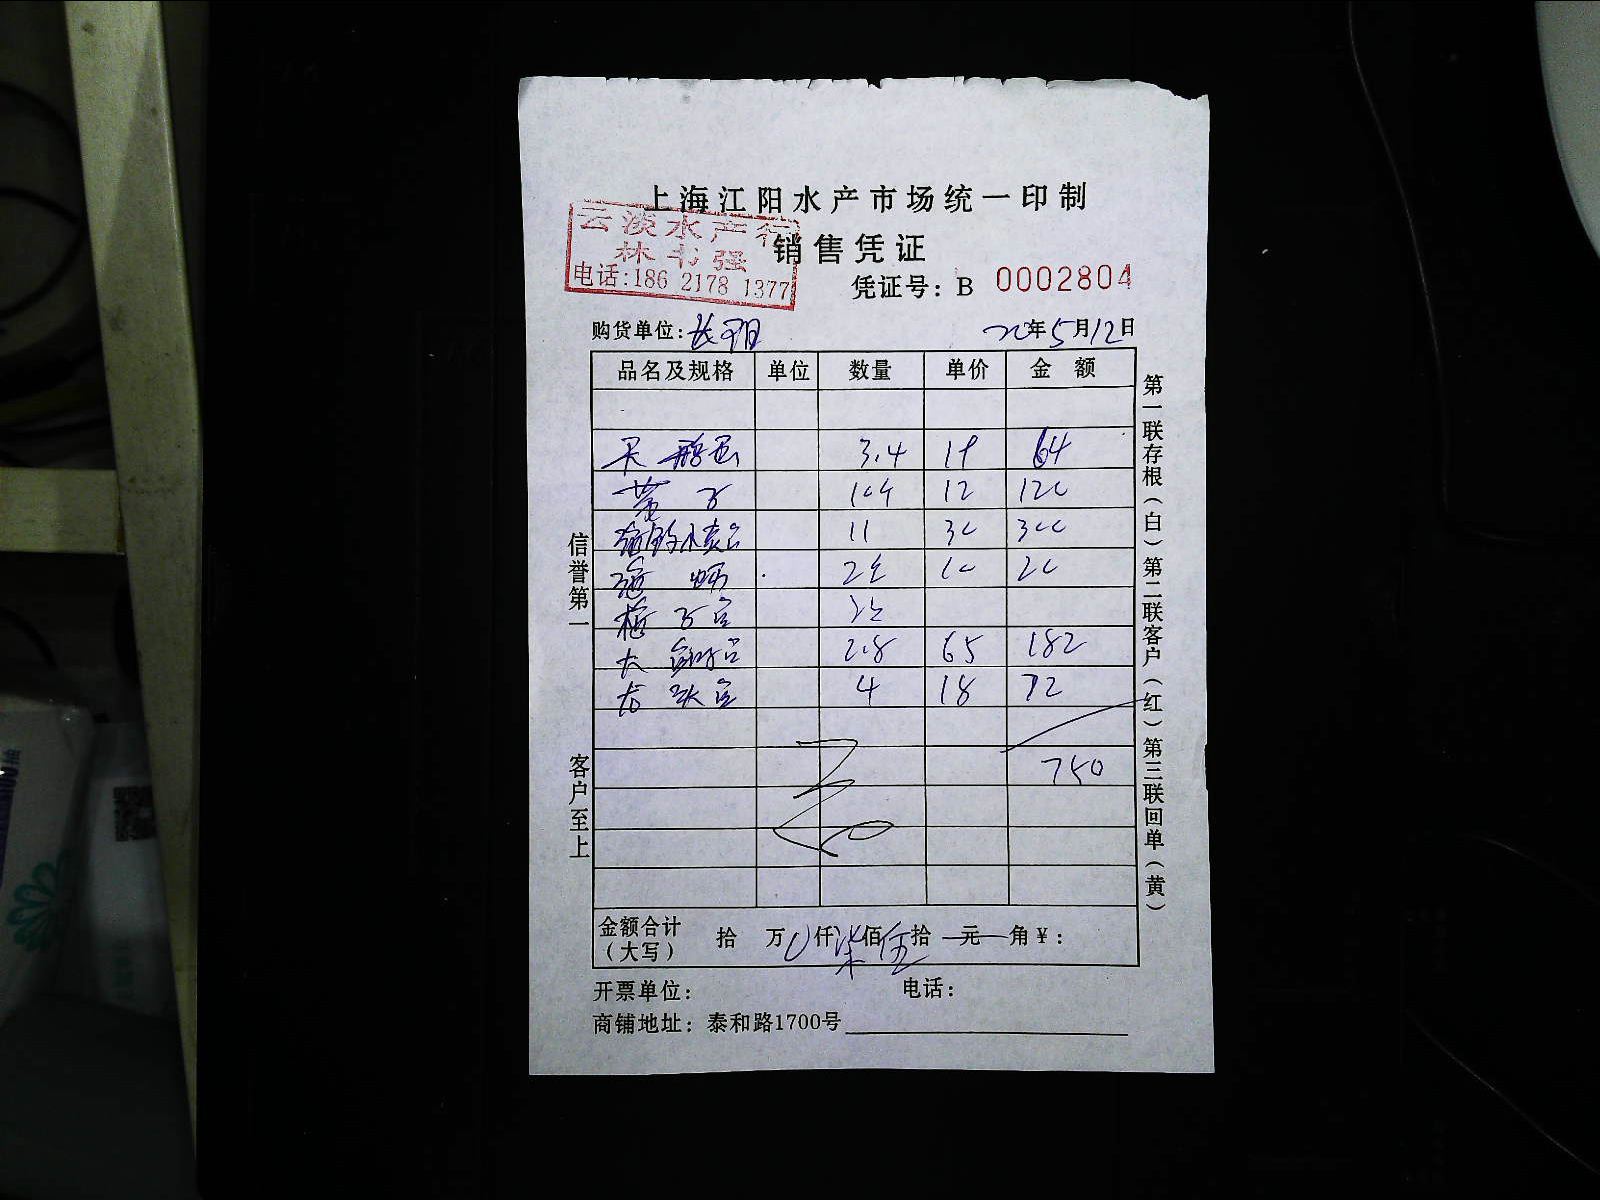 上海江阳水产市场统一印制
云淡水产行
林书强
电话:186 2178 1377
销售凭证
凭证号: B 0002804
购货单位:
年5月12日
品名及规格 单位 数量 单价 金额
3.4 19 64
12 120
11 30 300
海蛎 10 20
梅子
大 2.8 65 182
4 18 72
750
金额合计(大写) 拾 万 0 仟 柒 佰 伍 拾 元 角 ¥:
开票单位: 电话:
商铺地址: 泰和路1700号
信誉第一 客户至上
第一联存根(白) 第二联客户(红) 第三联回单(黄)